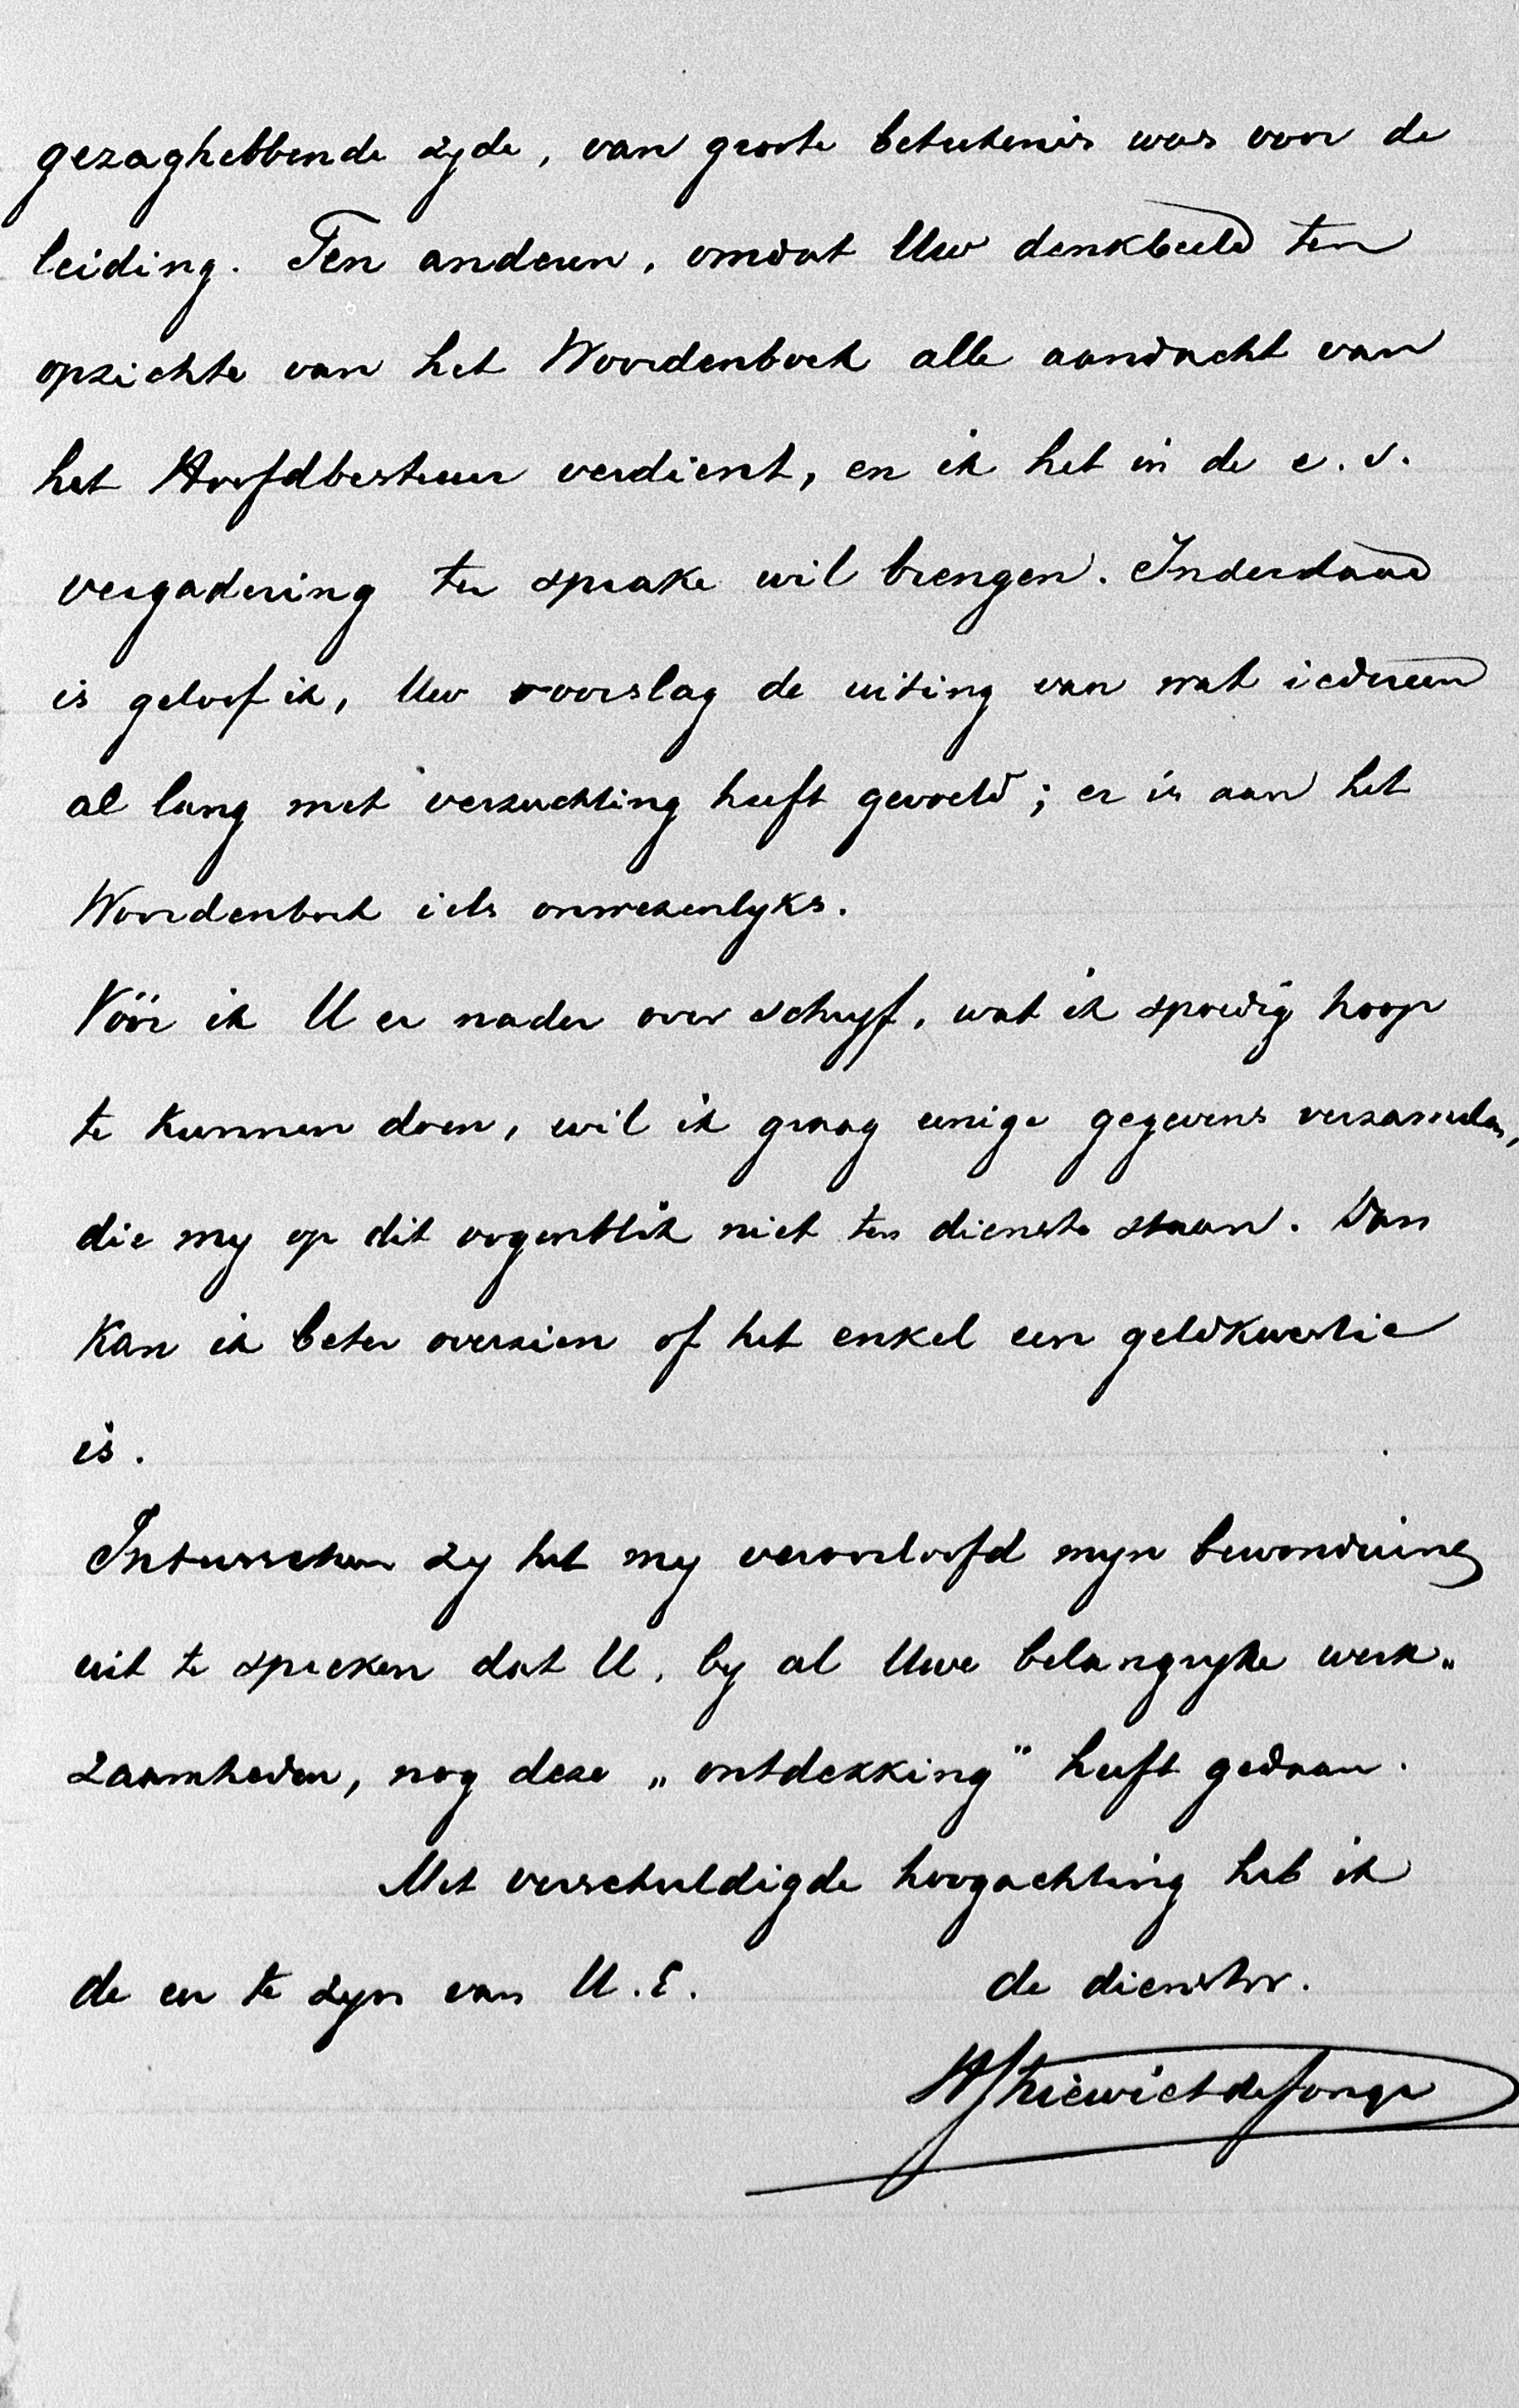 gezaghebbende zyde, van groote beteekenis was voor de
leiding. Ten anderen, omdat Uw denkbeeld ten
opzichte van het Woordenboek alle aandacht van
het Hoofdbestuur verdient, en ik het in de e.v.
vergadering ter sprake wil brengen. Inderdaad
is geloof ik, Uw voorslag de uiting van wat iedereen
al lang met verzuchting heeft gevoeld; er is aan het
Woordenboek iets onwezenlyks.
Vóór ik U er nader over schryf, wat ik spoedig hoop
te kunnen doen, wil ik graag eenige gegevens verzamelen,
die my op dit oogenblik niet ten dienste staan. Dan
kan ik beter overzien of het enkel een geldkwestie
is.
Intusschen zy het my veroorloofd myn bewondering
uit te spreken dat U, by al Uwe belangryke werk„
zaamheden, nog deze „ontdekking" heeft gedaan.
Met verschuldigde hoogachting heb ik
de eer te zyn van U.E. de dienstw.
HJKiewietdeJonge